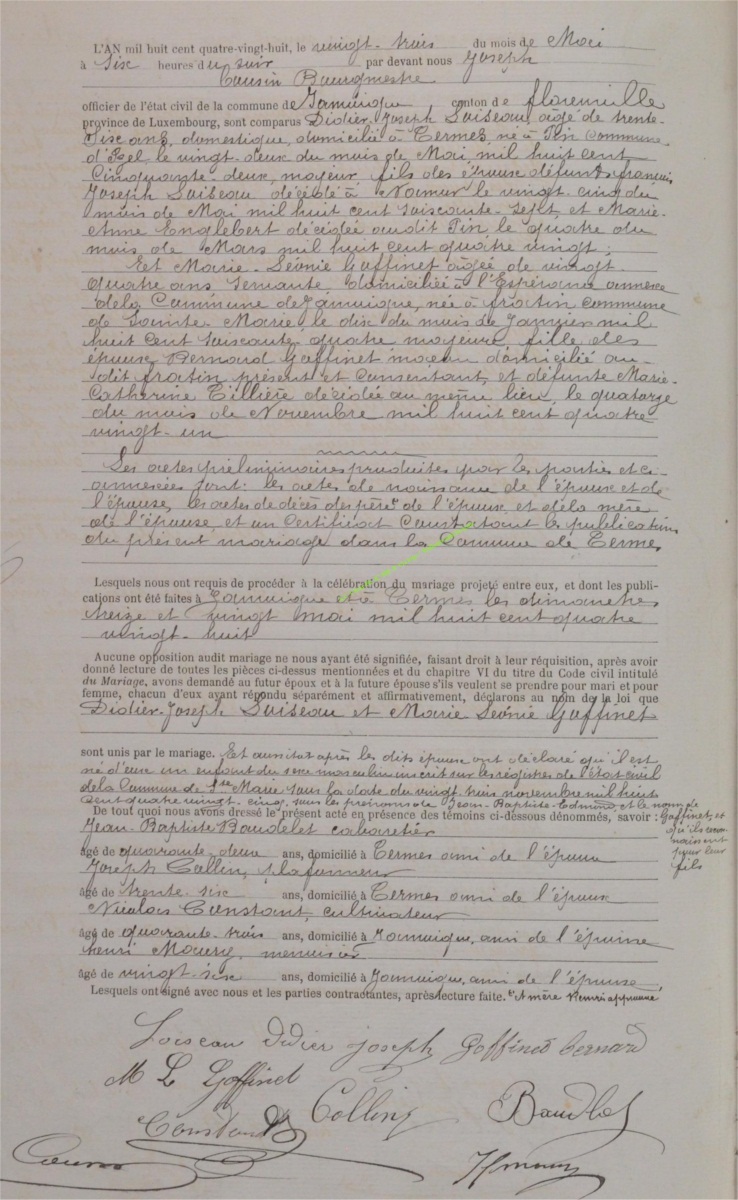 L'AN mil huit cent quatre-vingt-huit, le vingt-trois du mois de Mai
à six heures du soir par devant nous Joseph
Cousin Bourgmestre
officier de l'état civil de la commune de Jamoigne canton de florenville
province de Luxembourg, sont comparus Didier-Joseph Loiseau, âgé de trente-
six ans, domestique, domicilié à Termes, né à Pin commune
d'Izel, le vingt-deux du mois de Mai, mil huit cent
cinquante-deux, majeur, fils des époux défunts françois
Joseph Loiseau décédé à Namur le vingt cinq du
mois de Mai mil huit cent soixante-sept, et Marie-
Anne Englebert décédée audit Pin, le quatre du
mois de Mars mil huit cent quatre vingt ;
Et Marie-Léonie Goffinet âgée de vingt-
quatre ans servante, domiciliée à l'Espérance annexe
de la Commune de Jamoigne, née à fratin commune
de Sainte-Marie, le dix du mois de Janvier mil
huit cent soixante quatre majeure, fille des
époux Bernard Goffinet maçon domicilié au-
dit fratin, présent et consentant, et défunte Marie-
Catherine Tillière décédée au même lieu, le quatorze
du mois de Novembre mil huit cent quatre
vingt-un
Les actes préliminaires produites par les parties et ci-
annexées sont : les actes de naissance de l'époux et de
l'épouse, les actes de décès des père et de l'époux, et de la mère
de l'épouse, et un Certificat constatant la publication
du présent mariage dans la Commune de Termes
Lesquels nous ont requis de procéder à la célébration du mariage projeté entre eux, et dont les publi-
cations ont été faites à Jamoigne et à Termes les dimanches
treize et vingt mai mil huit cent quatre
vingt-huit
Aucune opposition audit mariage ne nous ayant été signifiée, faisant droit à leur réquisition, après avoir
donné lecture de toutes les pièces ci-dessus mentionnées et du chapitre VI du titre du Code civil intitulé
du Mariage, avons demandé au futur époux et à la future épouse s'ils veulent se prendre pour mari et pour
femme, chacun d'eux ayant répondu séparément et affirmativement, déclarons au nom de la loi que
Didier-Joseph Loiseau et Marie Léonie Goffinet
sont unis par le mariage. Et aussitôt après les dits époux ont déclaré qu'il est
né d'eux un enfant du sexe masculin inscrit sur les régistres de l'état civil
de la Commune de Ste Marie sous la date du vingt trois novembre mil huit
cent quatre vingt-cinq, sous les prénoms de Jean-Baptiste-Edmond et le nom de
Goffinet, et
qu'ils recon-
naissent
pour leur
fils
De tout quoi nous avons dressé le présent acté en présence des témoins ci-dessous dénommés, savoir :
Jean-Baptiste Baudelet cabaretier
âgé de quarante-deux ans, domicilié à Termes ami de l'époux
Joseph Collin, plafonneur
âgé de trente-six ans, domicilié à Termes ami de l'époux
Nicolas Constant, cultivateur
âgé de quarante-trois ans, domicilié à Jamoigne, ami de l'épouse
henri Maury, menuisier
âgé de vingt-six ans, domicilié à Jamoigne, ami de l'épouse,
Lesquels ont signé avec nous et les parties contractantes, après lecture faite. et mère
Loiseau didier joseph Goffinet bernard
M L Goffinet
Collin Baudlet
Constant
Cousin HMaury